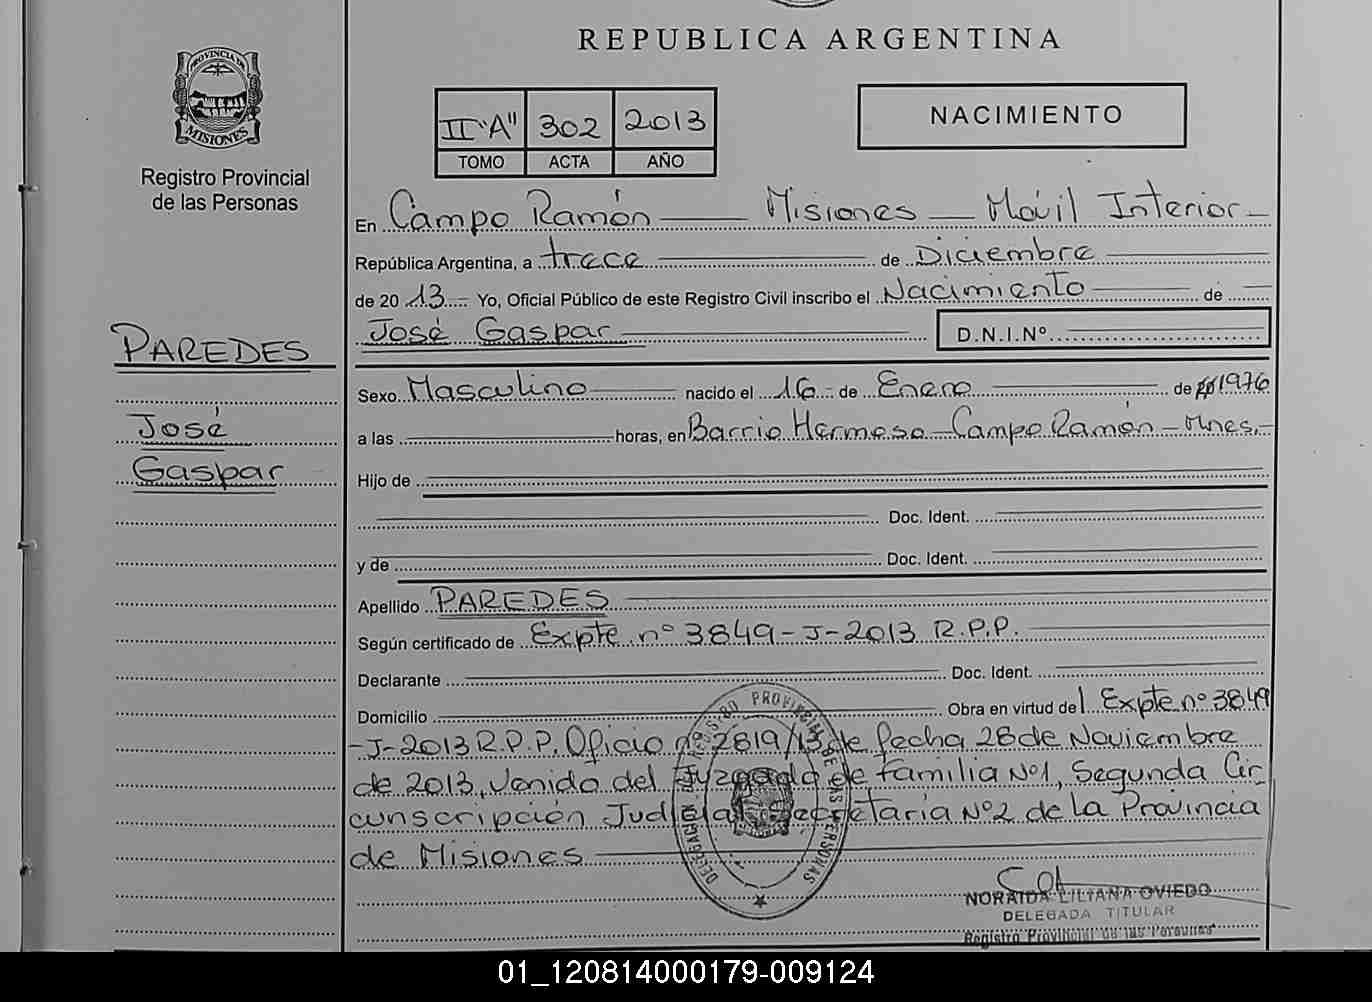 REPUBLICA ARGENTINA
PROVINCIA DE
MISIONES
Registro Provincial
de las Personas
II "A" 302 2013
TOMO ACTA AÑO
NACIMIENTO
En Campo Ramón Misiones Móvil Interior
República Argentina, a trece de Diciembre
de 20 13 Yo, Oficial Público de este Registro Civil inscribo el Nacimiento de
José Gaspar D.N.I.Nº
PAREDES
José
Gaspar
Sexo Masculino nacido el 16 de Enero de 1976
a las horas, en Barrio Hermoso - Campo Ramón - Mnes.-
Hijo de
Doc. Ident.
y de Doc. Ident.
Apellido PAREDES
Según certificado de Expte. nº 3849-J-2013 R.P.P.
Declarante Doc. Ident.
Domicilio Obra en virtud del Expte nº 3849
-J-2013 R.P.P. Oficio nº 2819/13 de fecha 28 de Noviembre
de 2013, venido del Juzgado de Familia Nº1, Segunda Cir
cunscripción Judicial, Secretaría Nº2 de la Provincia
de Misiones
DELEGACION REGISTRO PROVINCIAL DE LAS PERSONAS
NORAIDA LILIANA OVIEDO
DELEGADA TITULAR
Registro Provincial de las Personas
01_120814000179-009124